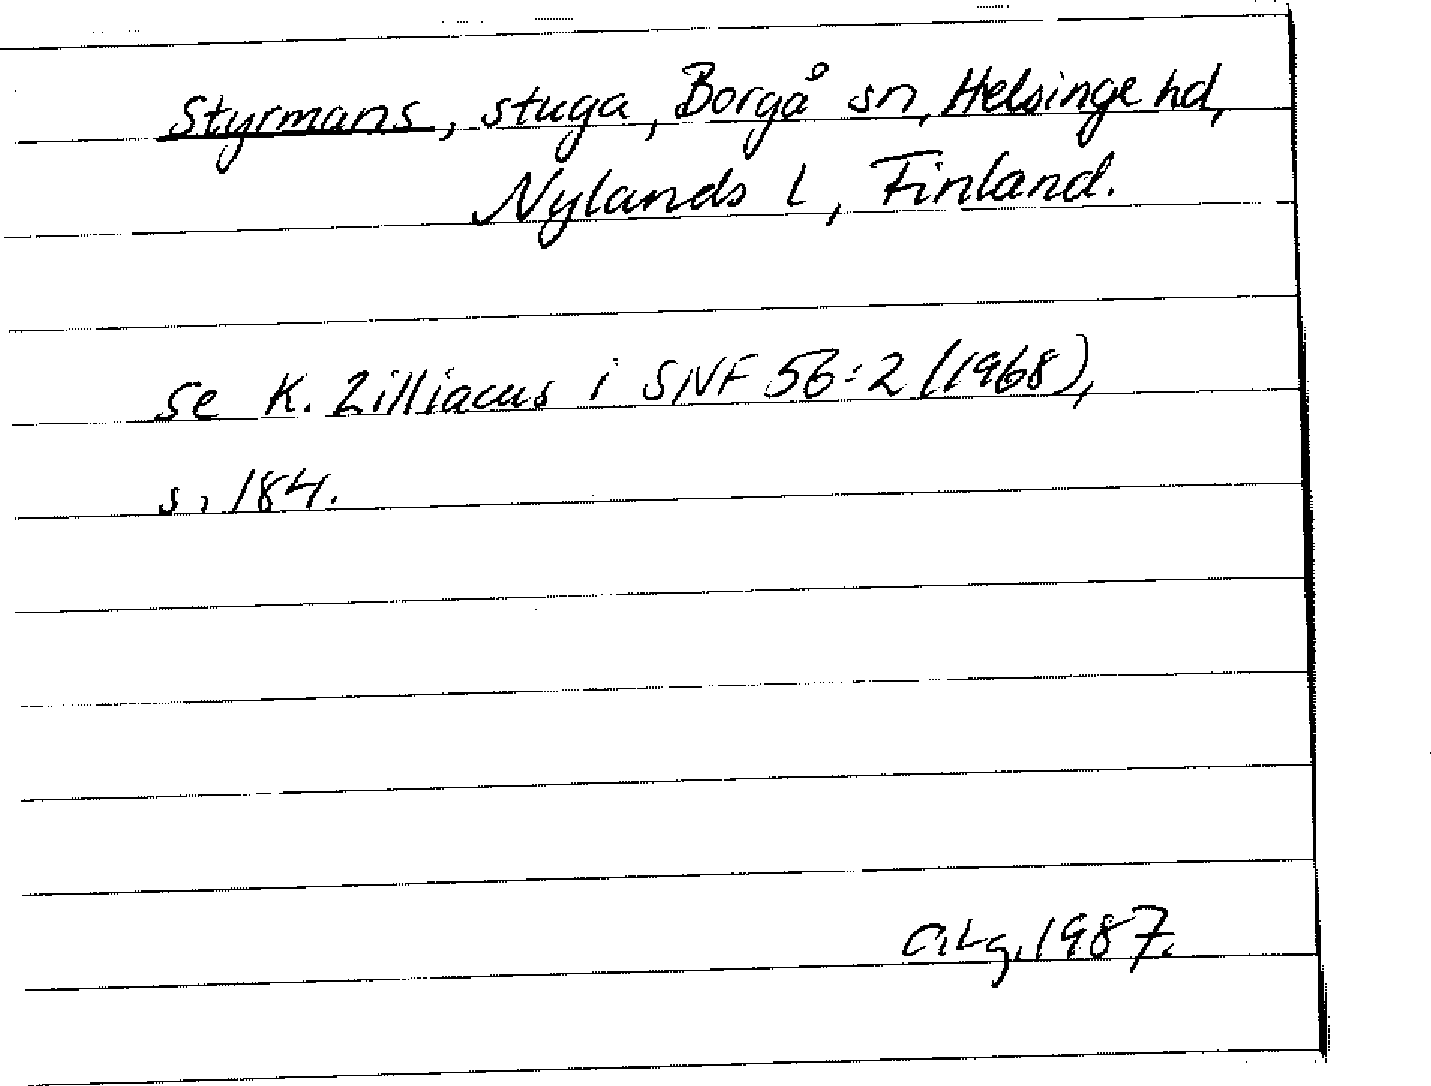 Styrmans, stuga, Borgå sn, Helsinge hd,
Nylands l, Finland.
se K. Zilliacus i SNF 56:2 (1968),
s. 184.
C.Lg. 1987.